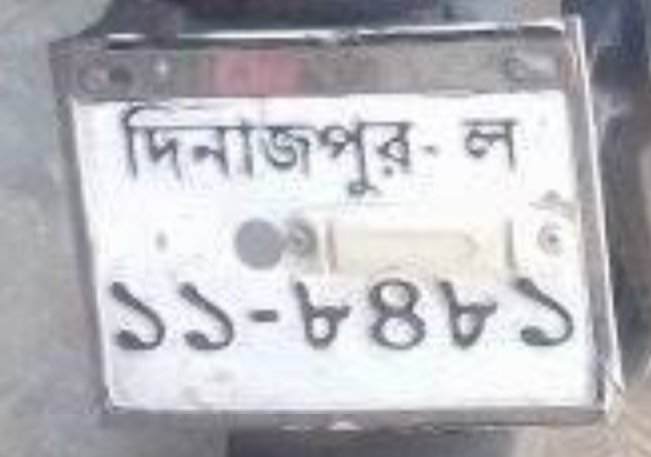 দিনাজপুর- ল
১১-৮৪৮১